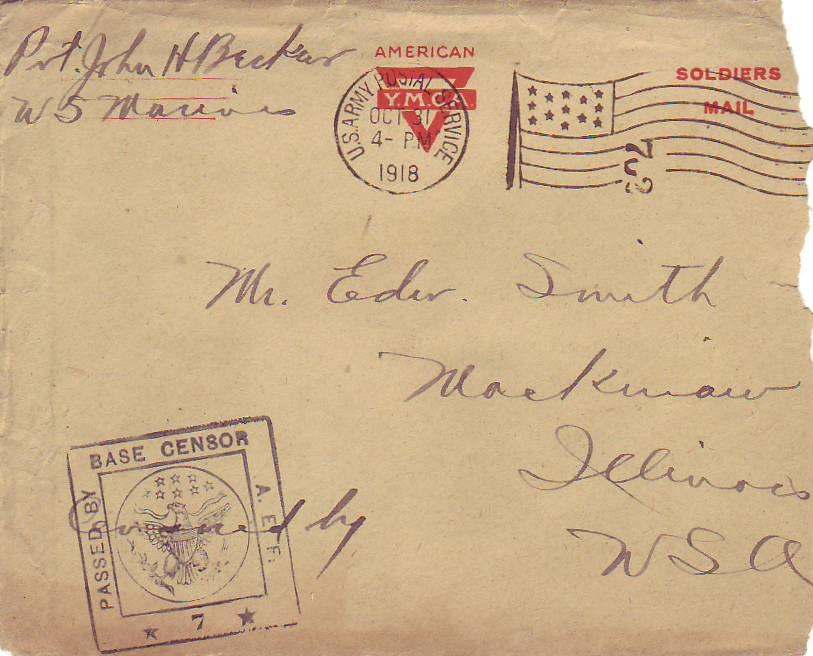 Pvt. John H Becker
US Marines
AMERICAN
Y.M.C.A.
U.S. ARMY POSTAL SERVICE
OCT 31
4- P.M
1918
SOLDIERS
MAIL
702
Mr. Edw. Smith
Mackinaw
Illinois
USA
PASSED BY
BASE CENSOR
A. E. F.
7
Censored by